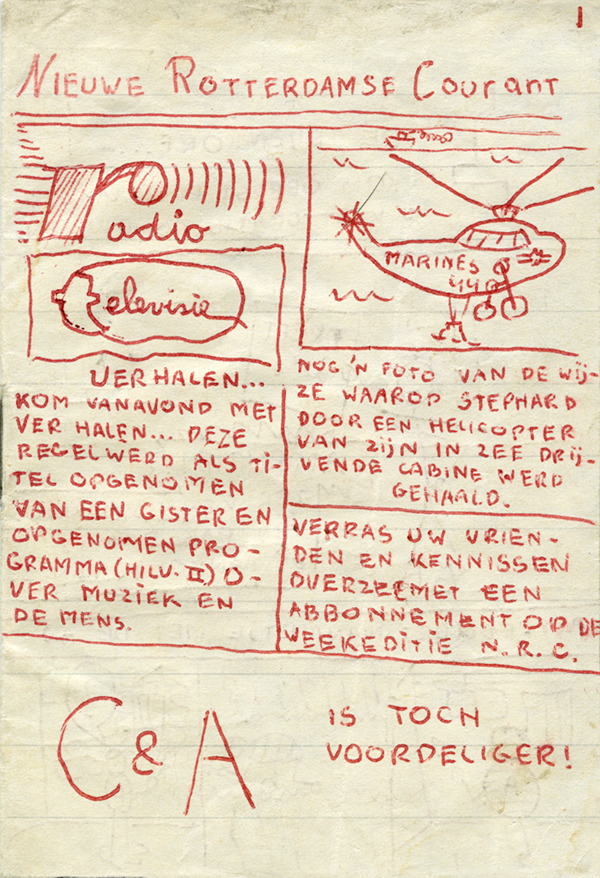 1
NIEUWE ROTTERDAMSE COURANT
Radio
Televisie
VERHALEN...
KOM VANAVOND MET
VERHALEN... DEZE
REGEL WERD ALS TI-
TEL OPGENOMEN
VAN EEN GISTEREN
OPGENOMEN PRO-
GRAMMA (HILV. II) O-
VER MUZIEK EN
DE MENS.
MARINES
44
NOG 'N FOTO VAN DE WIJ-
ZE WAAROP STEPHARD
DOOR EEN HELICOPTER
VAN ZIJN IN ZEE DRIJ-
VENDE CABINE WERD
GEHAALD.
VERRAS UW VRIEN-
DEN EN KENNISSEN
OVERZEE MET EEN
ABBONNEMENT OP DE
WEEKEDITIE N.R.C.
C & A
IS TOCH
VOORDELIGER!